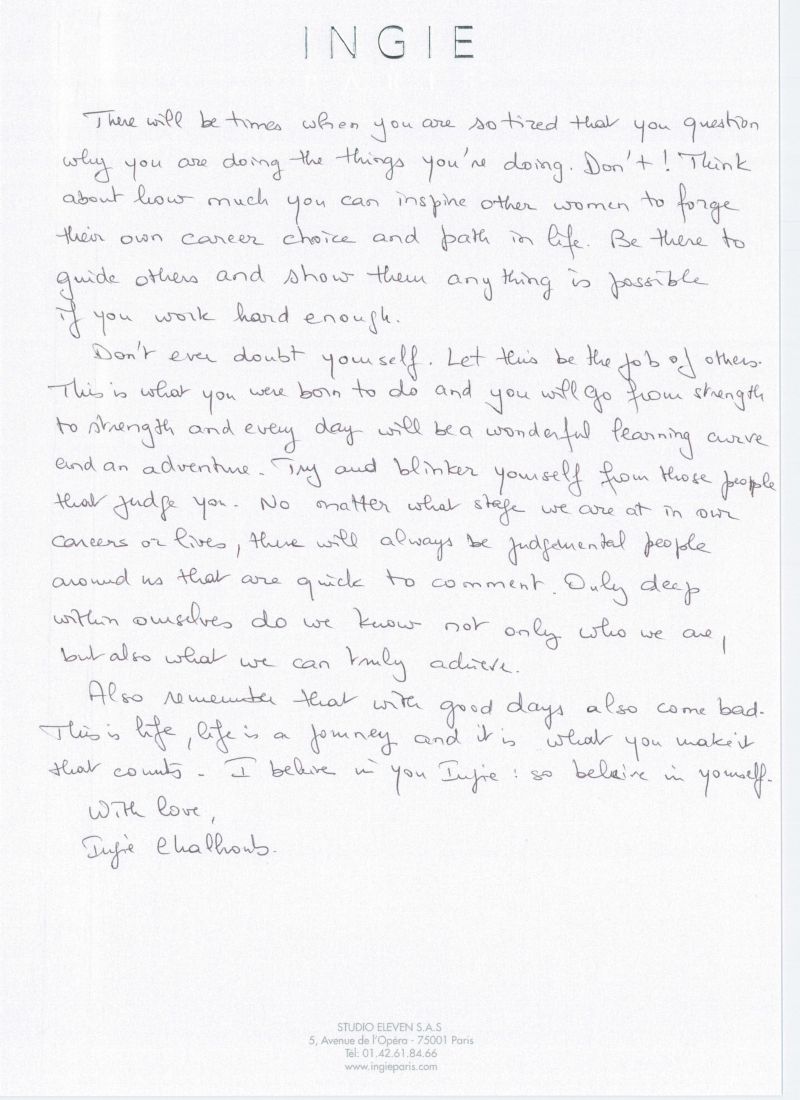 INGIE
PARIS
There will be times when you are so tired that you question
why you are doing the things you're doing. Don't! Think
about how much you can inspire other women to forge
their own career choice and path in life. Be there to
guide others and show them any thing is possible
if you work hard enough.
Don't ever doubt yourself. Let this be the job of others.
This is what you were born to do and you will go from strength
to strength and every day will be a wonderful learning curve
and an adventure. Try and blinker yourself from those people
that judge you. No matter what stage we are at in our
careers or lives, there will always be judgemental people
around us that are quick to comment. Only deep
within ourselves do we know not only who we are,
but also what we can truly achieve.
Also remember that with good days also come bad.
This is life, life is a journey and it is what you make it
that counts - I believe in you Ingie: so believe in yourself.
With love,
Ingie Chalhoub.
STUDIO ELEVEN S.A.S
5, Avenue de l'Opéra - 75001 Paris
Tél: 01.42.61.84.66
www.ingieparis.com